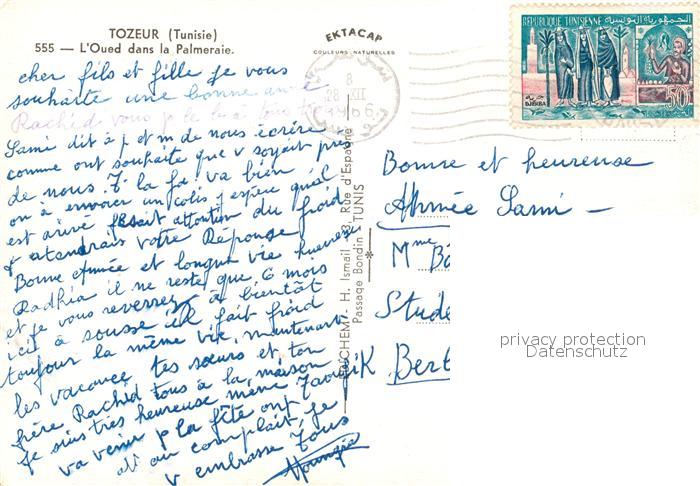 TOZEUR (Tunisie)
555 — L'Oued dans la Palmeraie.
EKTACAP
COULEURS NATURELLES
8
28 XII
1966
REPUBLIQUE TUNISIENNE الجمهورية التونسية
DJERBA
50
cher fils et fille je vous
souhaite une bonne année
Rachid vous
Sami dit à p et m de nous écrire
comme ont souhaite que v soyait près
de nous. T la fa. va bien
on à envoier un colis j espère qu'il
est arrivé fesait attention du froid
atendrais votre Réponse
Bonne Année et longue vie heureuse
Radhia il ne reste que 6 mois
et je vous reverrez à bientôt
ici à sousse il fait froid
toujour la même vie, maintenant
les vacance tes sœurs et, ton
frère Rachid tous à la maison
Je suis très heureuse même Zaoui
va venir p la fête ont
at au complait je
v embrasse Tous
Mounzia
EDICHEMY - H. Ismail - 3, Rue d'Espagne
Passage Bondin - TUNIS
Bonne et heureuse
Année Sami —
Mme
Stude
Bert
privacy protection
Datenschutz